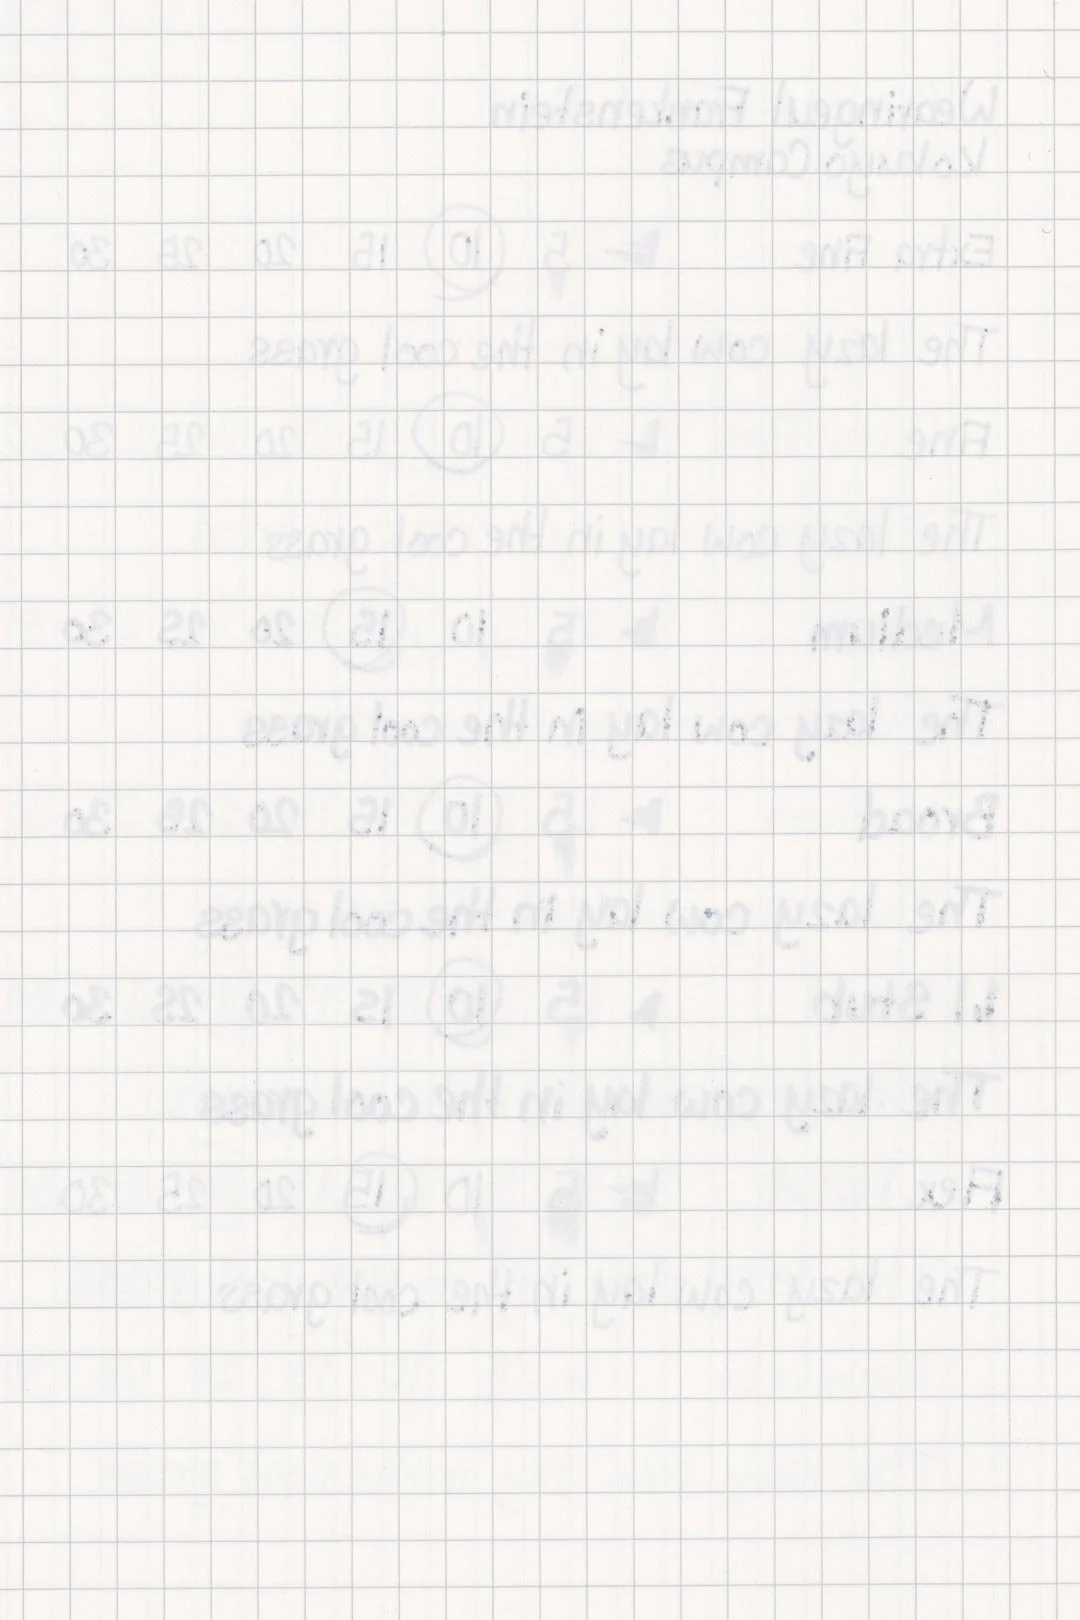 Wearingeul Frankenstein
Kokuyo Campus
Extra Fine 5 10 15 20 25 30
The lazy cow lay in the cool grass
Fine 5 10 15 20 25 30
The lazy cow lay in the cool grass
Medium 5 10 15 20 25 30
The lazy cow lay in the cool grass
Broad 5 10 15 20 25 30
The lazy cow lay in the cool grass
1.1 Stub 5 10 15 20 25 30
The lazy cow lay in the cool grass
Flex 5 10 15 20 25 30
The lazy cow lay in the cool grass